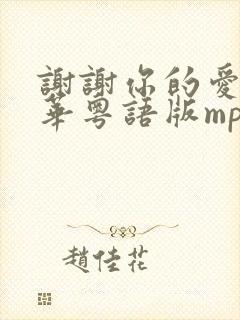 謝謝你的愛
華粵語版mp
趙佳花